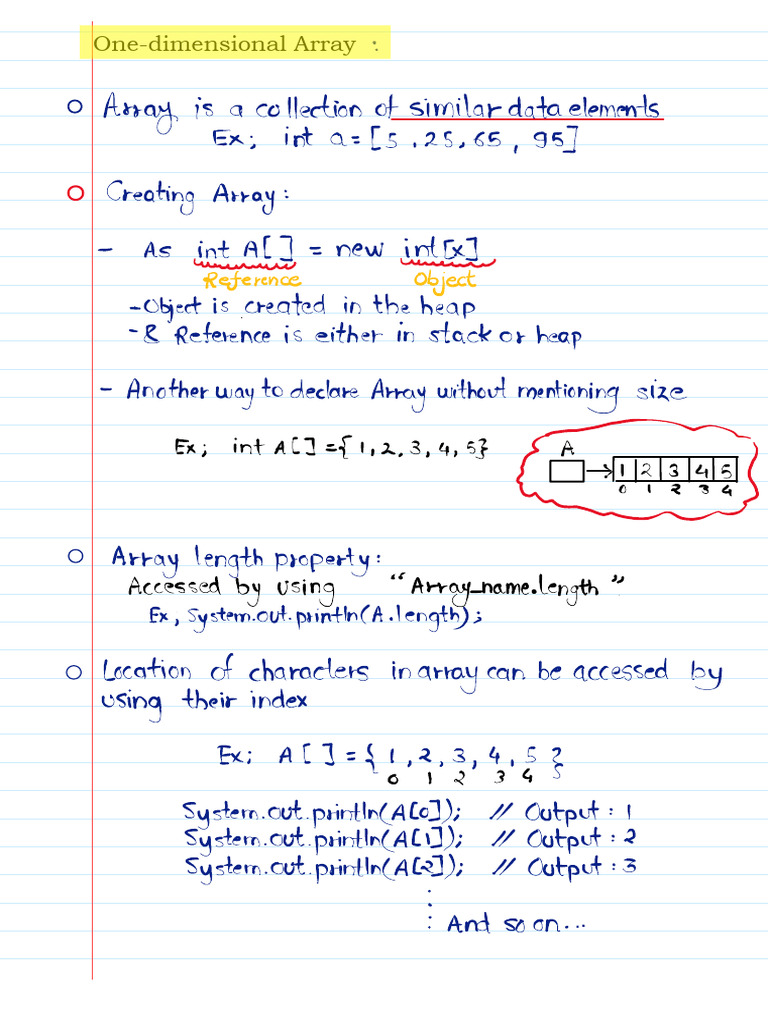 One-dimensional Array :
Array is a collection of similar data elements
Ex; int a=[5,25,65,95]
Creating Array:
- As int A[] = new int[x]
Reference Object
- Object is created in the heap
- & Reference is either in stack or heap
- Another way to declare Array without mentioning size
Ex; int A[]={1,2,3,4,5}
A
1 2 3 4 5
0 1 2 3 4
Array length property:
Accessed by using "Array_name.length"
Ex, System.out.println(A.length);
Location of characlers in array can be accessed by
using their index
Ex; A[]={1,2,3,4,5}
0 1 2 3 4 5
System.out.println(A[0]); // Output: 1
System.out.println(A[1]); // Output: 2
System.out.println(A[2]); // Output: 3
And so on...